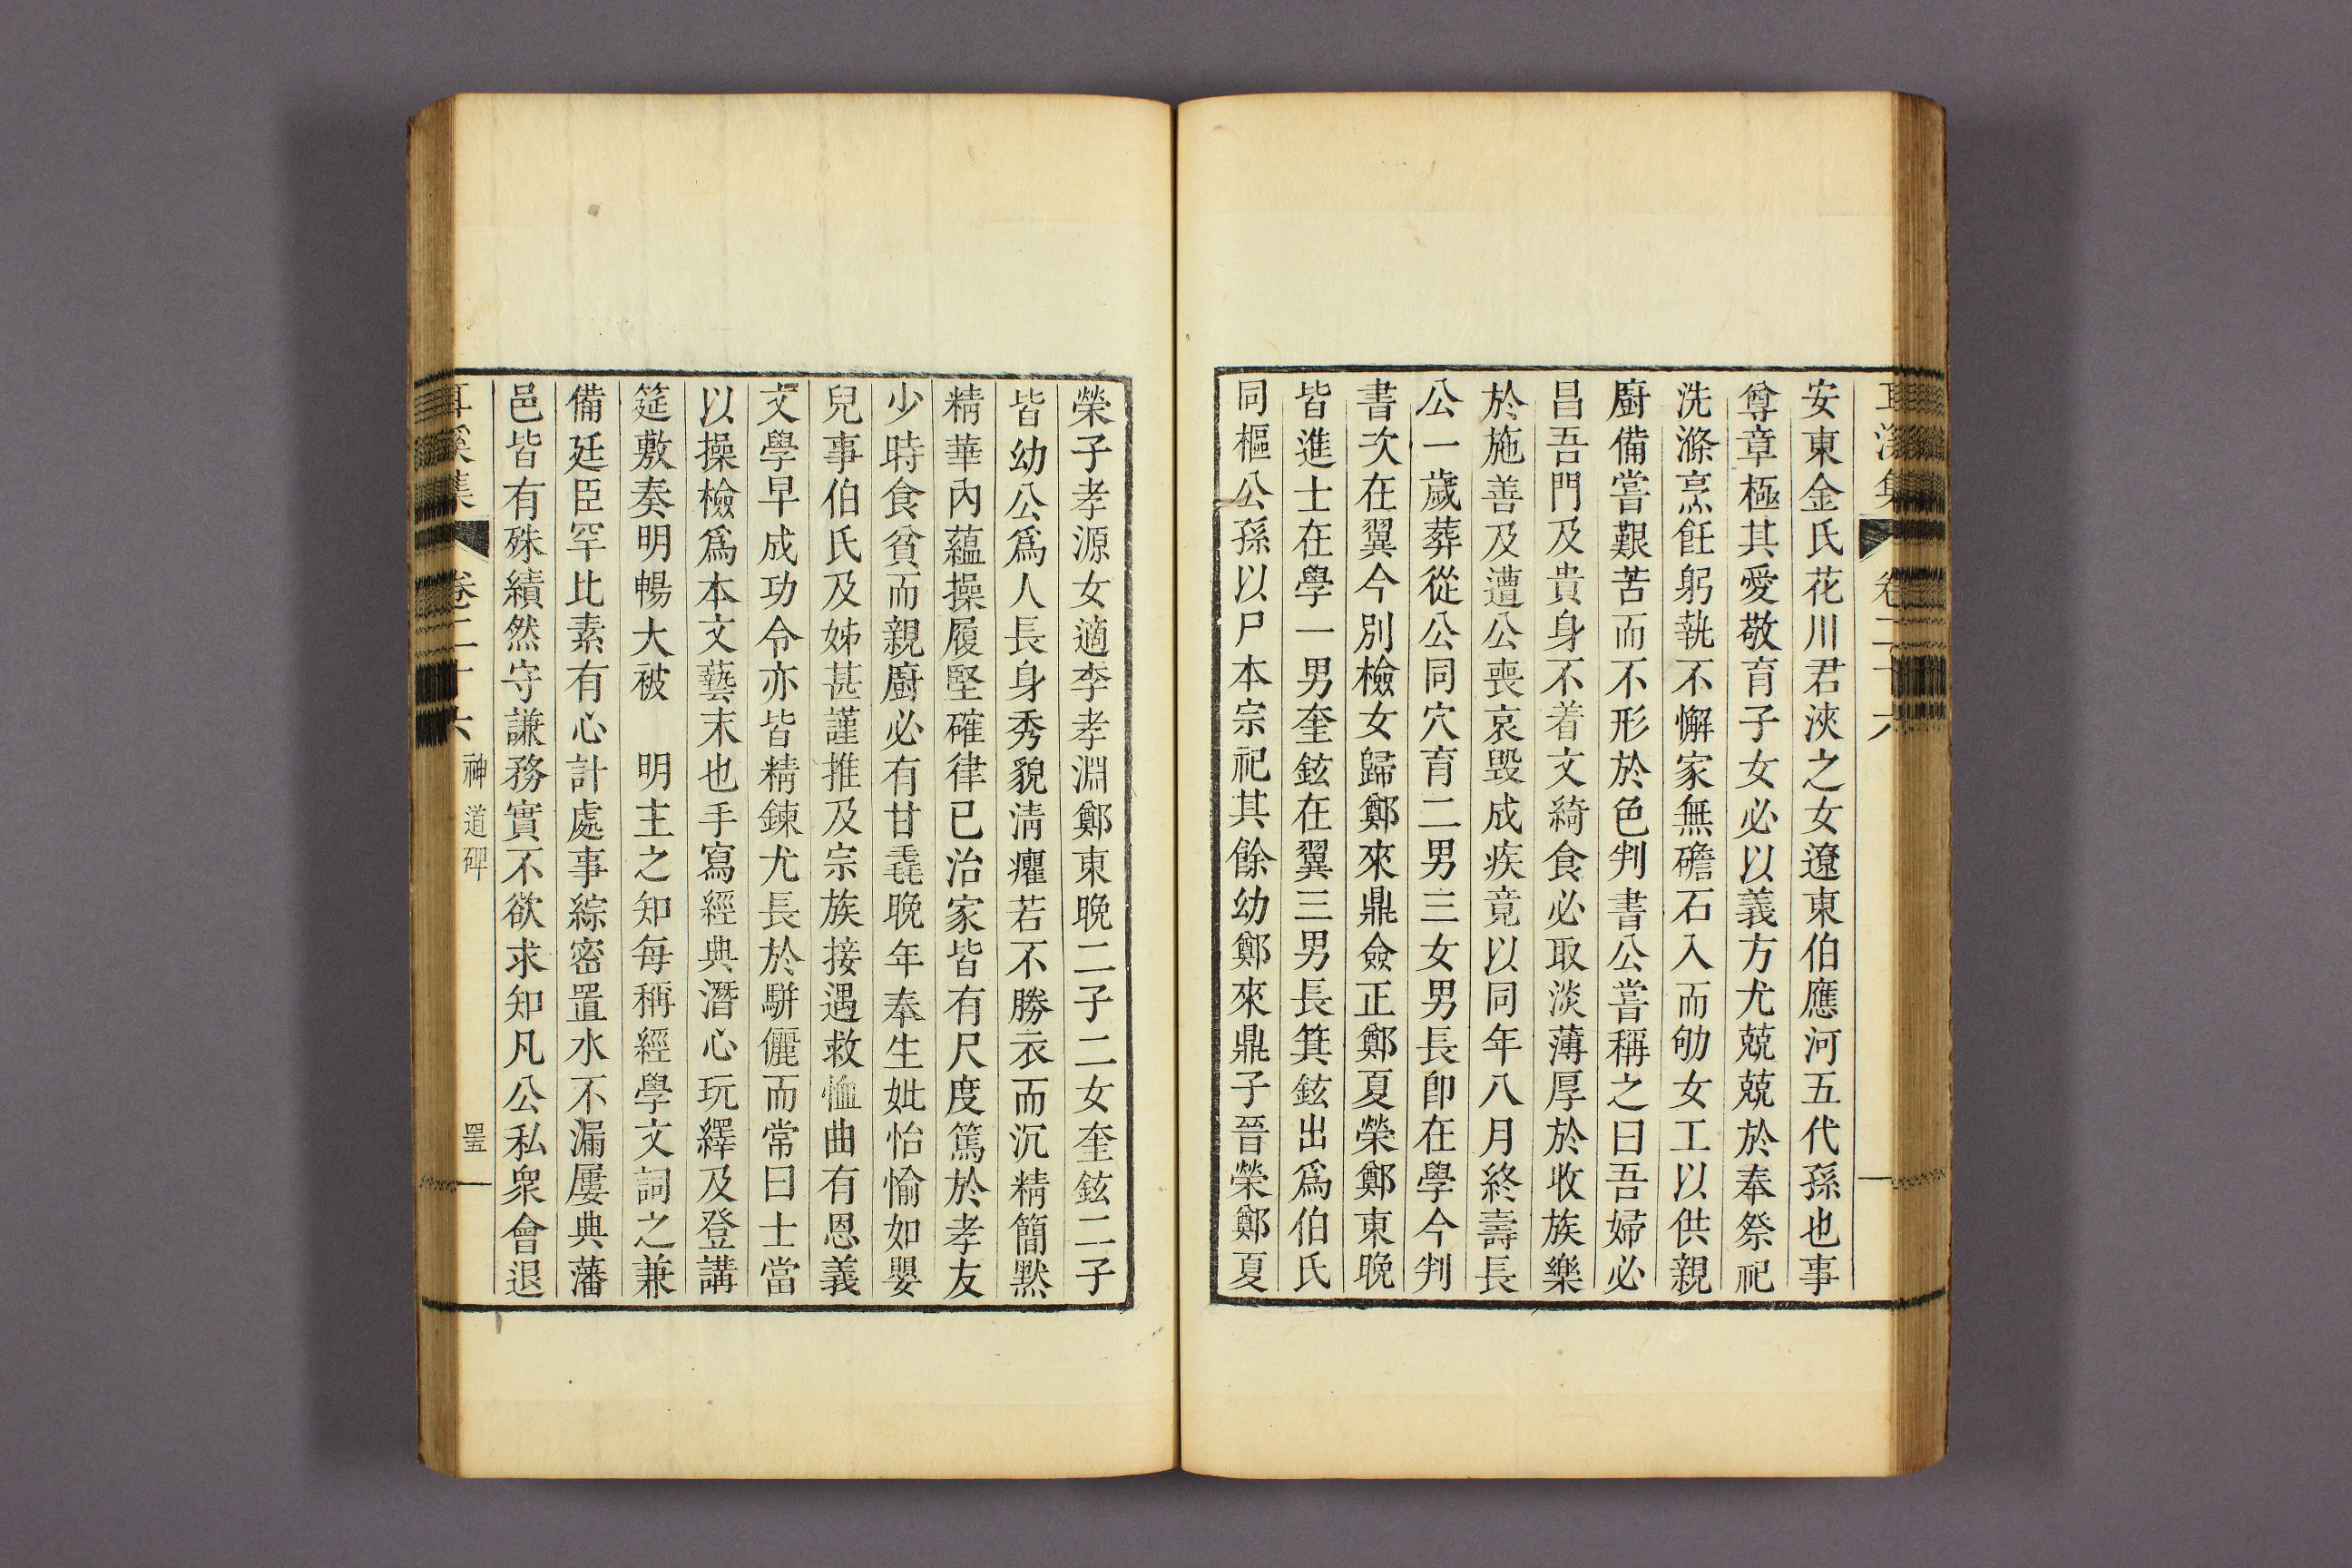 耳溪集 卷二十六
安東金氏花川君浹之女遼東伯應河五代孫也事
尊章極其愛敬育子女必以義方尤兢兢於奉祭祀
洗滌烹飪躬執不懈家無礠石入而劬女工以供親
廚備嘗艱苦而不形於色判書公嘗稱之曰吾婦必
昌吾門及貴身不着文綺食必取淡薄厚於收族樂
於施善及遭公喪哀毁成疾竟以同年八月終壽長
公一歲葬從公同穴育二男三女男長卽在學今判
書次在翼今別檢女歸鄭來鼎僉正鄭夏榮鄭東晩
皆進士在學一男奎鉉在翼三男長箕鉉出爲伯氏
同樞公孫以尸本宗祀其餘幼鄭來鼎子晉榮鄭夏
榮子孝源女適李孝淵鄭東晩二子二女奎鉉二子
皆幼公爲人長身秀貌淸癯若不勝衣而沉精簡默
精華內蘊操履堅確律已治家皆有尺度篤於孝友
少時食貧而親廚必有甘毳晩年奉生妣怡愉如嬰
兒事伯氏及姊甚謹推及宗族接遇救恤曲有恩義
文學早成功令亦皆精鍊尤長於騈儷而常曰士當
以操檢爲本文藝末也手寫經典潛心玩繹及登講
筵敷奏明暢大被 明主之知每稱經學文詞之兼
備廷臣罕比素有心計處事綜密置水不漏屢典藩
邑皆有殊績然守謙務實不欲求知凡公私衆會退
耳溪集 卷二十六 神道碑 四五